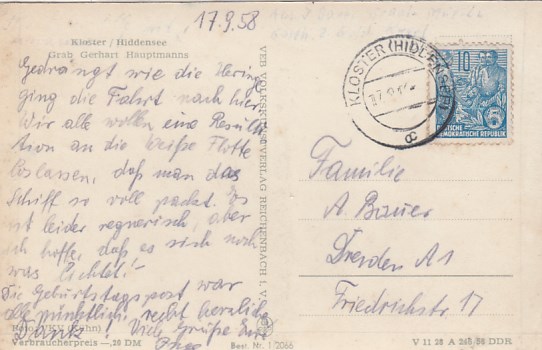 17.9.58
Kloster / Hiddensee
Grab Gerhart Hauptmanns
Gedrängt wie die Hering
ging die Fahrt nach hier
Wir alle wollen eine Resolu
tion an die Weiße Flotte
loslassen, daß man das
Schiff so voll packt. Es
ist leider regnerisch, aber
ich hoffe, daß es sich noch
was lichtet! -
Die Geburtstagspost war
alle pünktlich! recht herzlich
Danke! Viele Grüße Eure
Foto: VKV (Kühn)
Verbraucherpreis —,20 DM
Best. Nr. 1/2066
VEB VOLKSKUNSTVERLAG REICHENBACH I. V.
KLOSTER (HIDDENSEE)
10
DEUTSCHE
DEMOKRATISCHE REPUBLIK
Familie
A Bauer
Dresden A1
Friedrichstr 17
V 11 28 A 58 DDR